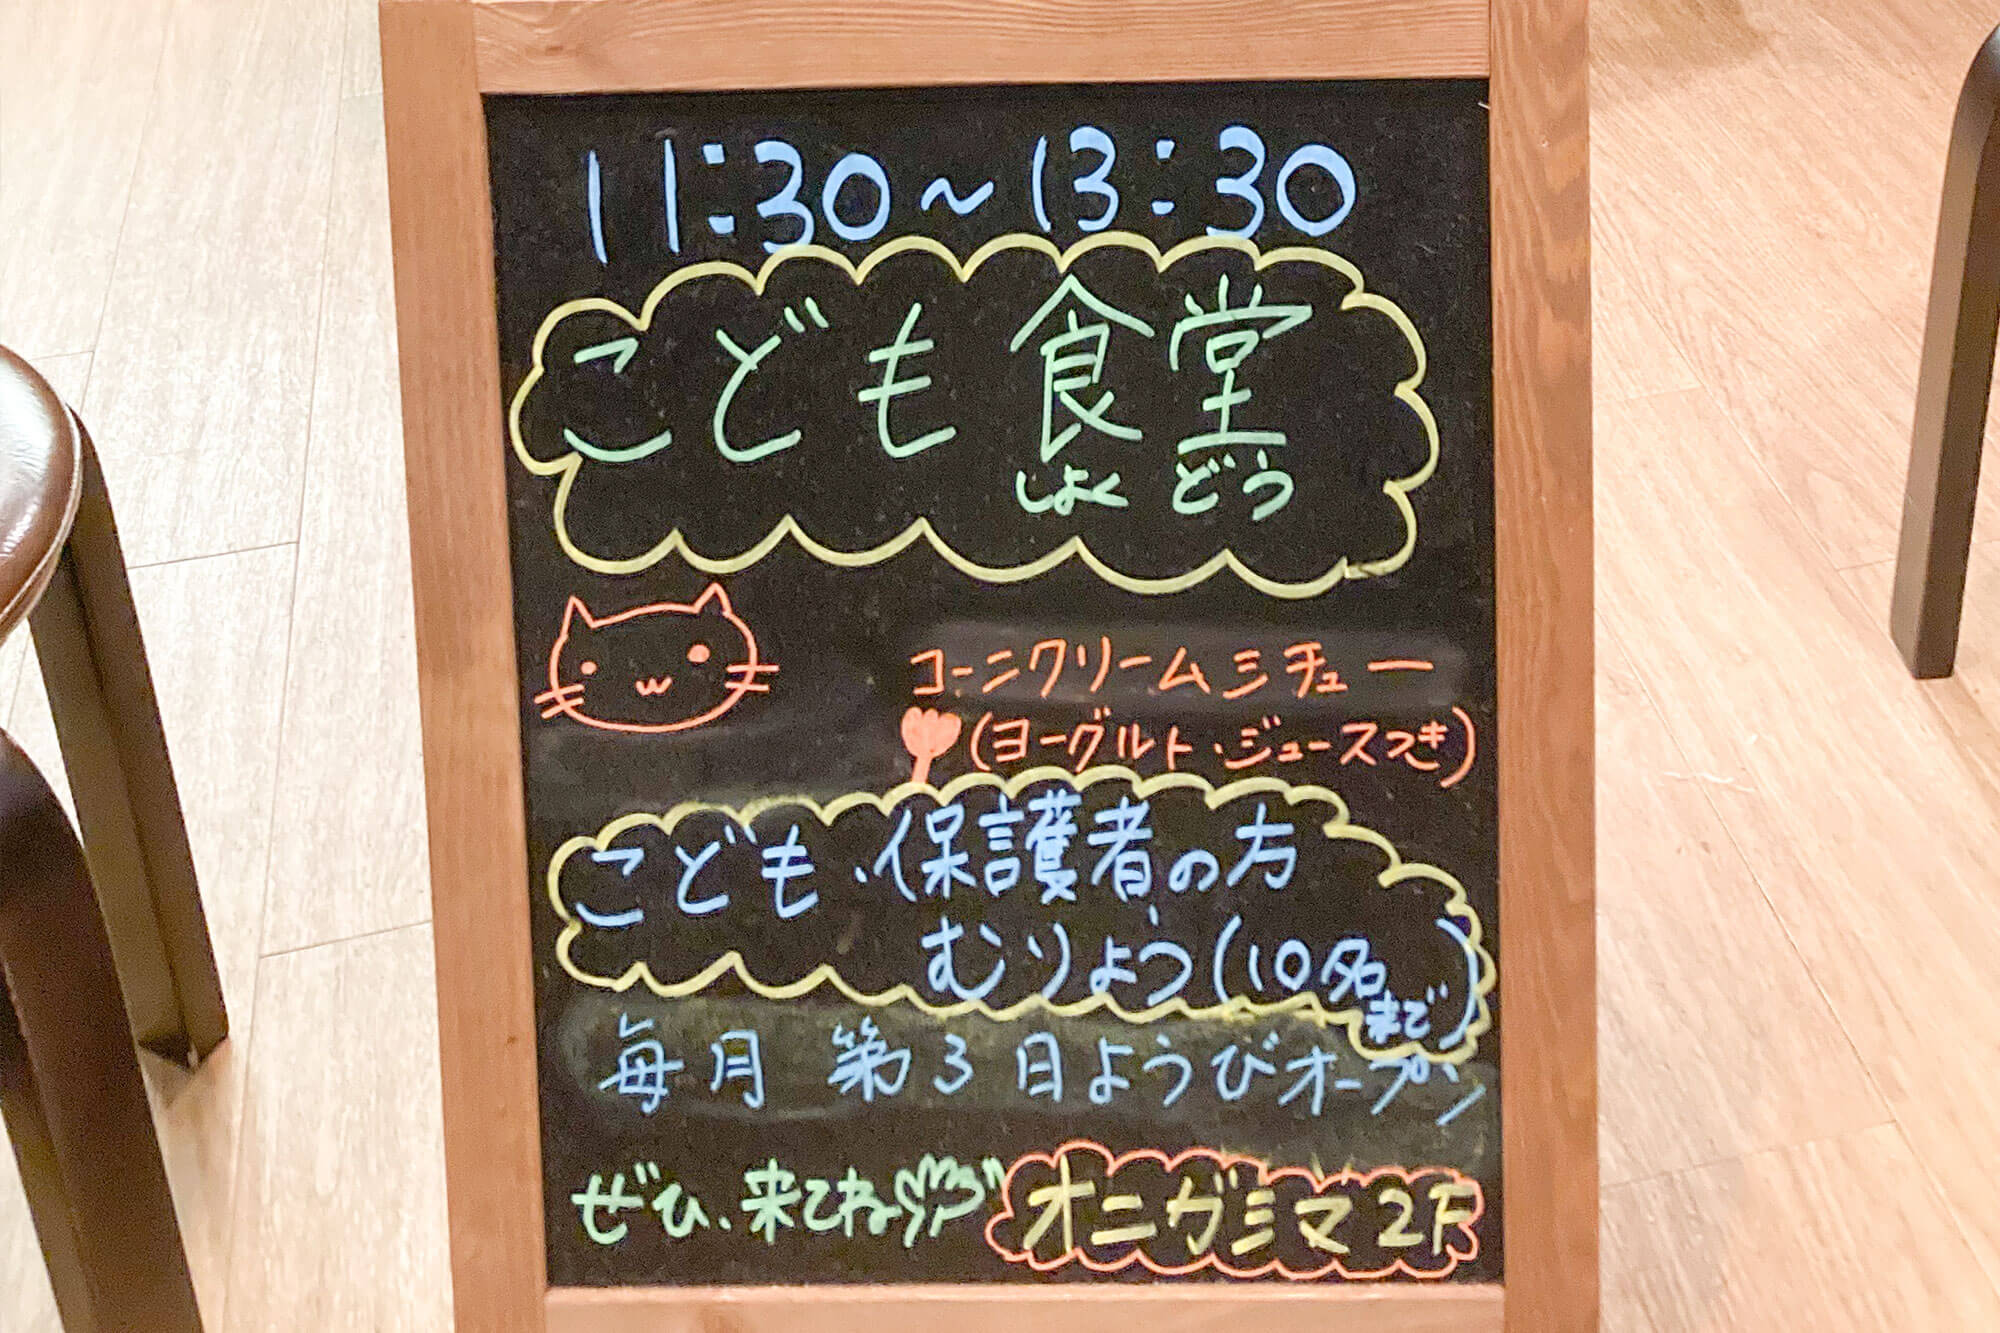 11:30～13:30
こども食堂
しょくどう
コーンクリームシチュー
(ヨーグルト・ジュースつき)
こども・保護者の方
むりょう(10名まで)
毎月 第3日ようびオープン
ぜひ、来てね
オニガシマ2F